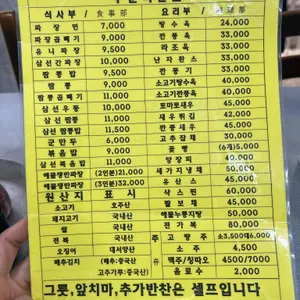 식사부 / 食事部
요리부 /
짜장면 7,000
짜장곱빼기 9,000
유니짜장 9,000
삼선간짜장 10,000
짬뽕 9,500
짬뽕밥 10,000
짬뽕곱빼기 11,000
삼선우동 10,000
삼선짬뽕 11,000
삼선짬뽕밥 11,500
군만두 6,000
볶음밥 9,000
삼선볶음밥 11,000
해물쟁반짜장 (2인분)21,000
해물쟁반짜장 (3인분)32,000
탕수육 24,000
깐풍육 33,000
라조육 33,000
난자완스 33,000
깐풍기 33,000
소고기탕수육 40,000
소고기깐풍육 40,000
토마토새우 45,000
새우튀김 42,000
깐풍새우 45,000
고추잡채 30,000
꽃빵 (6개)5,000
양장피 40,000
세가지냉채 50,000
유산슬 45,000
삭스핀 60,000
팔보채 45,000
해물누룽지탕 50,000
전가복 80,000
고량주 소3,500대6,000
소주 4,500
맥주/청막오 4500/7000
음료수 2,000
원산지표시
소고기 호주산
돼지고기 국내산
쌀 국내산
전복 국내산
오징어 대서양산
배추김치 (배추:중국산)
고추가루:중국산)
그릇,앞치마,추가반찬은 셀프입니다